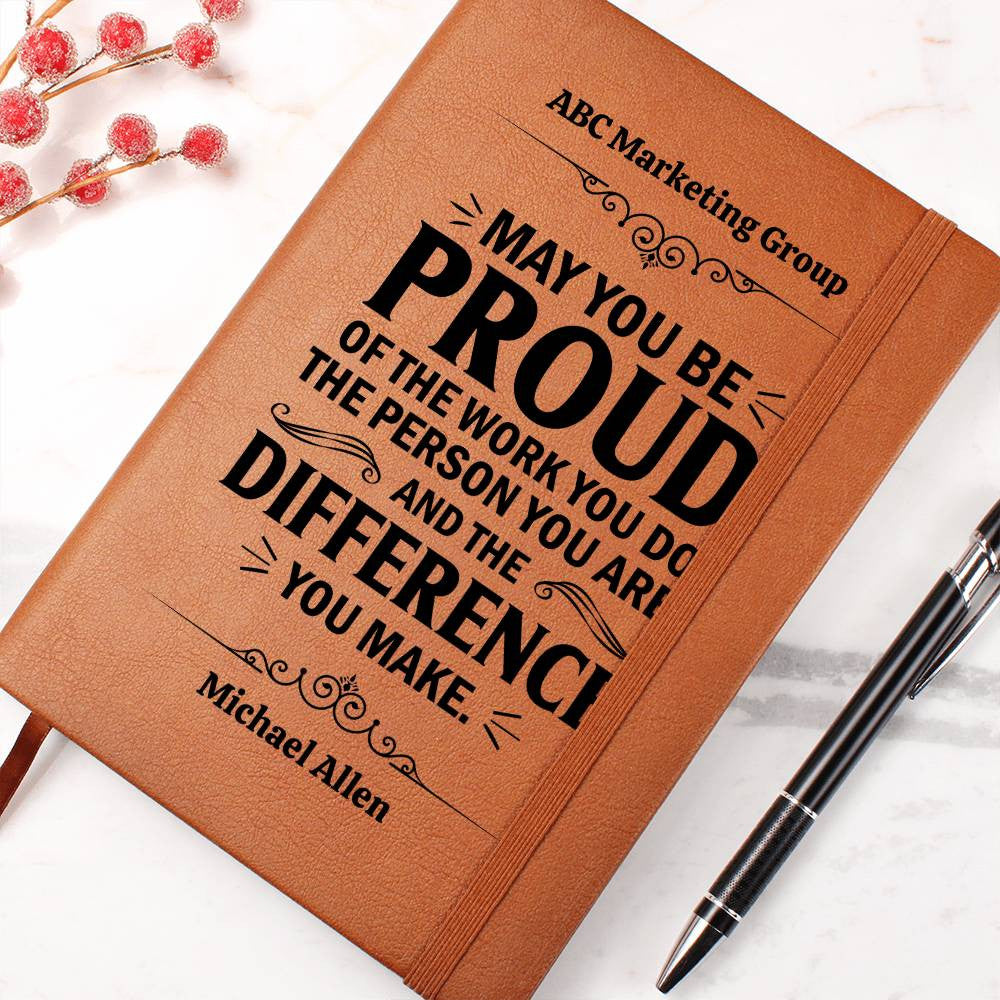 ABC Marketing Group
MAY YOU BE
PROUD
OF THE WORK YOU DO
THE PERSON YOU ARE
AND THE
DIFFERENC
YOU MAKE.
Michael Allen